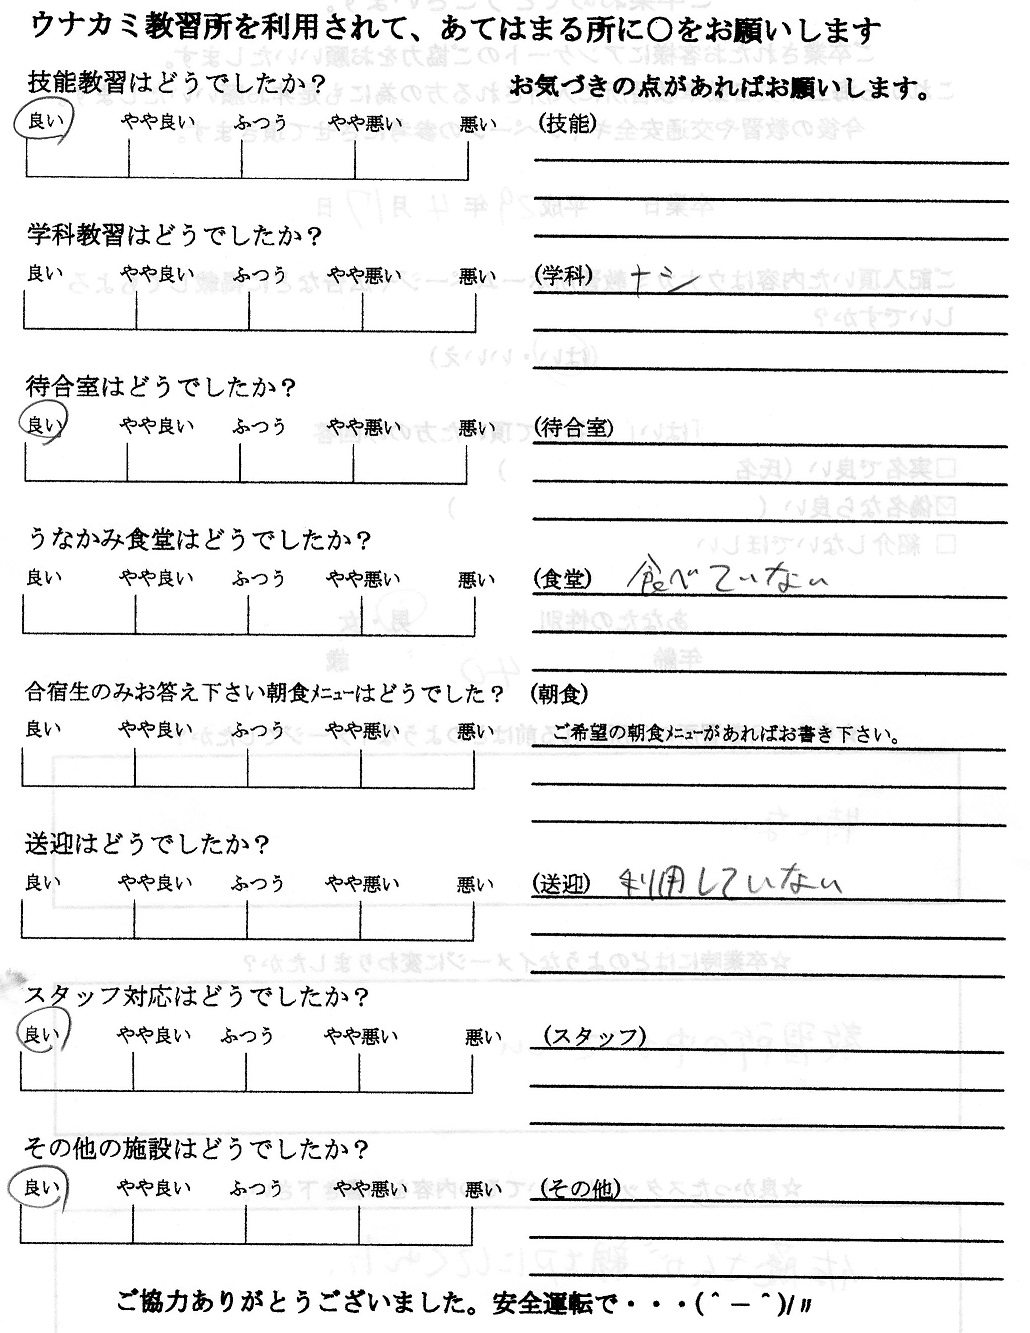 ウナカミ教習所を利用されて、あてはまる所に〇をお願いします
技能教習はどうでしたか？
お気づきの点があればお願いします。
良い やや良い ふつう やや悪い 悪い (技能)
学科教習はどうでしたか？
良い やや良い ふつう やや悪い 悪い (学科) ナシ
待合室はどうでしたか？
良い やや良い ふつう やや悪い 悪い (待合室)
うなかみ食堂はどうでしたか？
良い やや良い ふつう やや悪い 悪い (食堂) 食べていない
合宿生のみお答え下さい朝食ﾒﾆｭｰはどうでした？ (朝食)
良い やや良い ふつう やや悪い 悪い ご希望の朝食ﾒﾆｭｰがあればお書き下さい。
送迎はどうでしたか？
良い やや良い ふつう やや悪い 悪い (送迎) 利用していない
スタッフ対応はどうでしたか？
良い やや良い ふつう やや悪い 悪い (スタッフ)
その他の施設はどうでしたか？
良い やや良い ふつう やや悪い 悪い (その他)
ご協力ありがとうございました。安全運転で・・・(＾－＾)/〃